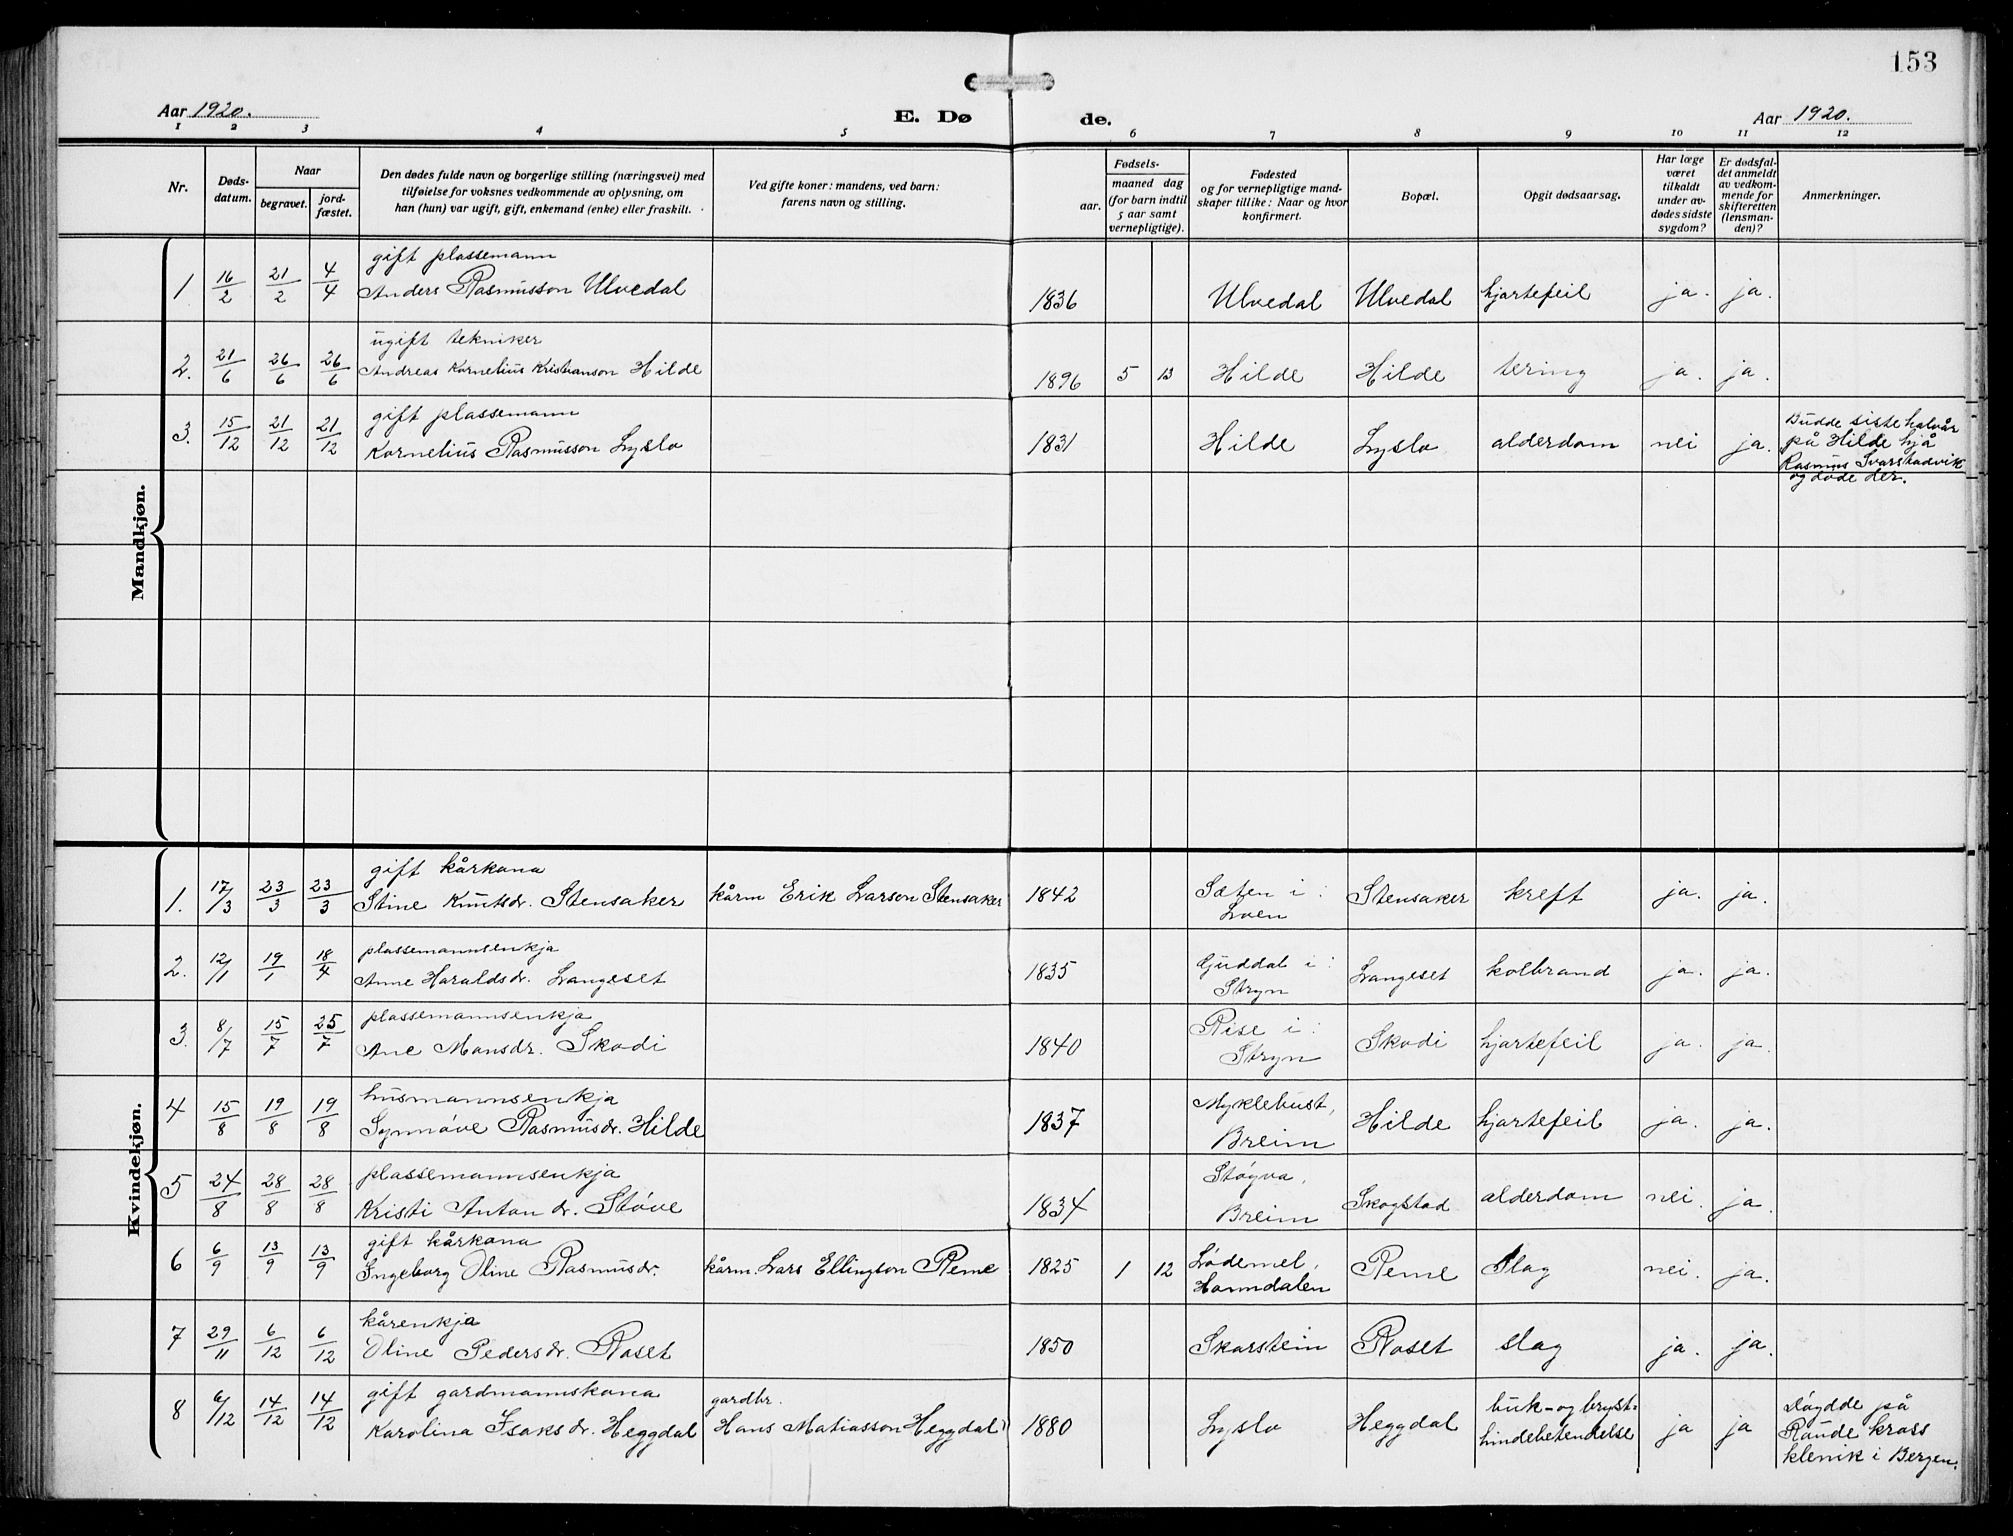 153
Aar 1920.
E. Dø
de.
Aar 1920.
1 2 3 4 5 6 7 8 9 10 11 12
Nr.
Døds-
datum.
Naar
begravet.
jord-
fæstet.
Den dødes fulde navn og borgerlige stilling (næringsvei) med
tilføielse for voksnes vedkommende av oplysning, om
han (hun) var ugift, gift, enkemand (enke) eller fraskilt.
Ved gifte koner: mandens, ved barn:
farens navn og stilling.
Fødsels-
aar.
maaned dag
(for barn indtil
5 aar samt
vernepligtige).
Fødested
og for vernepligtige mand-
skaper tillike: Naar og hvor
konfirmert.
Bopæl.
Opgit dødsaarsag.
Har læge
været
tilkaldt
under av-
dødes sidste
sygdom?
Er dødsfal-
det anmeldt
av vedkom-
mende for
skifteretten
(lensman-
den)?
Anmerkninger.
Mandkjøn.
gift plassemann
1 16/2 21/2 4/4 Anders Rasmusson Ulvedal 1836 Ulvedal Ulvedal hjartefeil ja. ja.
ugift tekniker
2. 21/6 26/6 26/6 Andreas Kornelius Kristianson Hilde 1896 5 13 Hilde Hilde tering ja. ja.
gift plassemann
3. 15/12 21/12 21/12 Kornelius Rasmusson Lyslo 1831 Hilde Lyslo alderdom nei ja.
Budde siste halvår
på Hilde hjå
Rasmus Svarstadvik
og døde der.
Kvindekjøn.
gift kårkona
1. 17/3 23/3 23/3 Stine Knutsdr. Stensaker kårm Erik Larson Stensaker 1842 Sæten i
Loen Stensaker kreft ja. ja.
plassemannsenkja
2. 12/1 19/1 18/4 Anne Haraldsdr. Langeset 1835 Guddal i
Stryn Langeset kolbrand ja. ja.
plassemannsenkja
3. 8/7 15/7 25/7 Ane Monsdr. Skodi 1840 Rise i
Stryn Skodi hjartefeil ja. ja.
husmannsenkja
4 15/8 19/8 19/8 Synnøve Rasmusdr. Hilde 1837 Myklebust,
Breim Hilde hjartefeil ja. ja.
plassemannsenkja
5 24/8 28/8 28/8 Kristi Anton dr. Støve 1834 Støyva,
Breim Skogstad alderdom nei. ja.
gift kårkona
6 6/9 13/9 13/9 Ingeborg Oline Rasmusdr. kårm. Lars Ellingson Reme 1825 1 12 Lødemel,
Horndalen Reme slag nei. ja.
kårenkja
7 29/11 6/12 6/12 Oline Pedersdr. Roset 1850 Skarstein Roset slag ja. ja.
gift gardmannskona
8 6/12 14/12 14/12 Karolina Isaksdr. Heggdal gardbr.
Hans Matiasson Heggdal 1880 Lyslo Heggdal buk- og bryst-
hindebetendelse ja ja
Døydde på
Raude kross
klenik i Bergen.